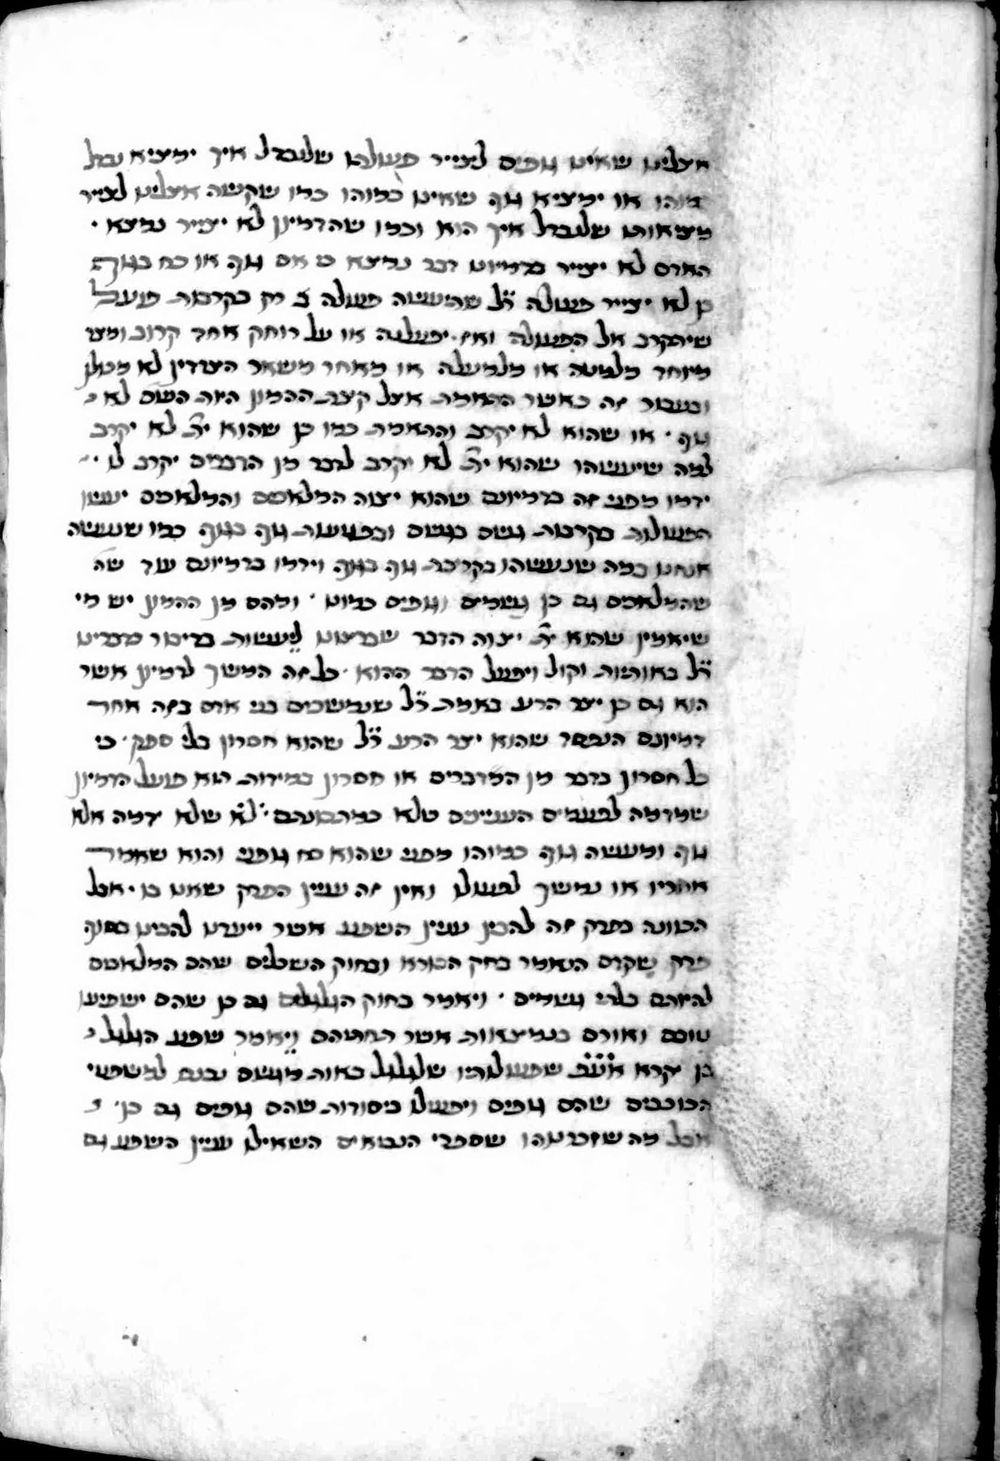 אצלינו שאינו גופים לצייר פעולתו שלנבדל איך ימציא נבדל
כמוהו או ימציא גוף שאינו כמוהו כמו שקשה אצלינו לצייר
מציאותו שלנבדל איך הוא וכמו שהדמיון לא יצייר נמצא
האדם לא יצייר בדמיונו דבר נמצא כי אם גוף או כח בגוף
כן לא יצייר פעולה ר״ל שתיעשה פעולה כי רק בקריבות פועל
שיתקרב אל הפעולה ואז יפעלנה או על רוחק אחד קרוב ומצד
מיוחד מלמטה או מלמעלה או מאחד משאר הצדדין לא מכולן
ובעבור זה כאשר התאמת אצל קצת ההמון היות השם לא
גוף או שהוא לא יקרב וההאמת כמו כן שהוא ית׳ לא יקרב
למה שיעשהו שהוא ית׳ לא יקרב לדבר מן הדברים יקרב לו
ידמו מפני זה בדמיונם שהוא יצוה המלאכים והמלאכים יעשו
הפעולות בקריבות גשם בגשם ובפגיעות גוף בגוף כמו שנעשה
אנחנו במה שנעשהו בקריבת גוף בגוף וידמו בדמיונם עוד שה
שהמלאכים גם כן גשמים וגופים כמונו ומהם מן ההמון יש מי
שיאמין שהוא ית׳ יצוה הדבר שברצונו לעשות בדיבור כדברינו
ר״ל באותיות וקול ויפעל הדבר ההוא כל זה המשך לדמיון אשר
הוא גם כן יצר הרע באמת ר״ל שנמשכים בני אדם בזה אחר
דמיונם הנפסד שהוא יצר הרע ר״ל שהוא חסרון בלי ספק כי
כל חסרון בדבר מן המדברים או חסרון במידות הוא פועל הדמיון
שמדמה לפעמים העניינים שלא כמהותם
גוף ומעשה גוף כמוהו מפני שהוא כח גופני והוא שאמר
אחריו או נמשך לפעולו ואין זה עניין הפרק שאנו בו אבל
הכוונה בפרק זה להבין עניין השפע אשר ייעדנו להבינו בסוף
פרק שקדם הנאמר בחק הבורא ובחוק השכלים שהם המלאכים
להיותם בלתי גשמים ויאמר בחוק הגלגלים גם כן שהם ישפיעו
טובם ואורם בנמצאות אשר תחתיהם ויאמר שפע הגלגל
כן יקרא אע״פ שפעולותיו שלגלגל באות מגשם
הכוכבים שהם גופים ויפעלו ביסודות שהם גופים גם כן
אבל מה שזכרנוהו שספרי הנבואים השאילו עניין השפע גם